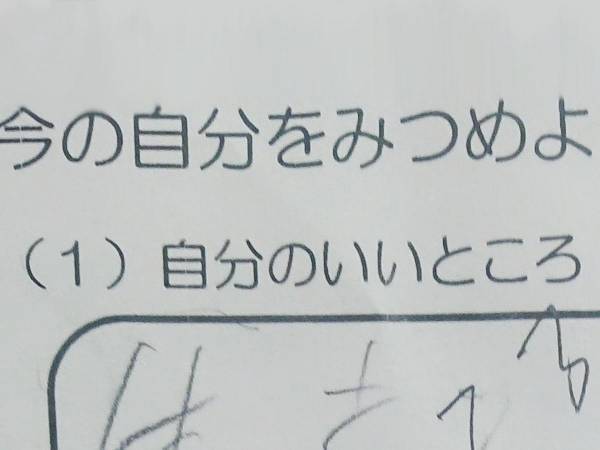 今の自分をみつめよ
(1) 自分のいいところ